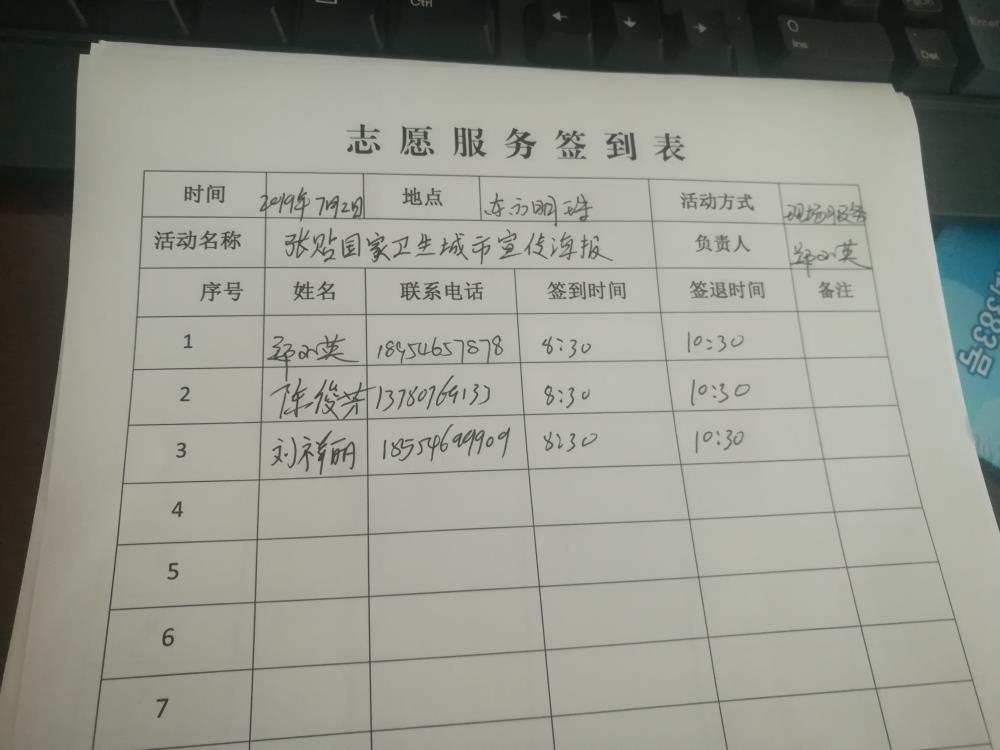 志愿服务签到表
时间 2019年7月2日 地点 东方明珠 活动方式 现场服务
活动名称 张贴国家卫生城市宣传海报 负责人 郑小英
序号 姓名 联系电话 签到时间 签退时间 备注
1 郑小英 18954657878 8:30 10:30
2 陈俊芳 13780769133 8:30 10:30
3 刘祥丽 18554699909 8:30 10:30
4
5
6
7
Ctrl
← ↓ →
0
Ins
Del
Enter